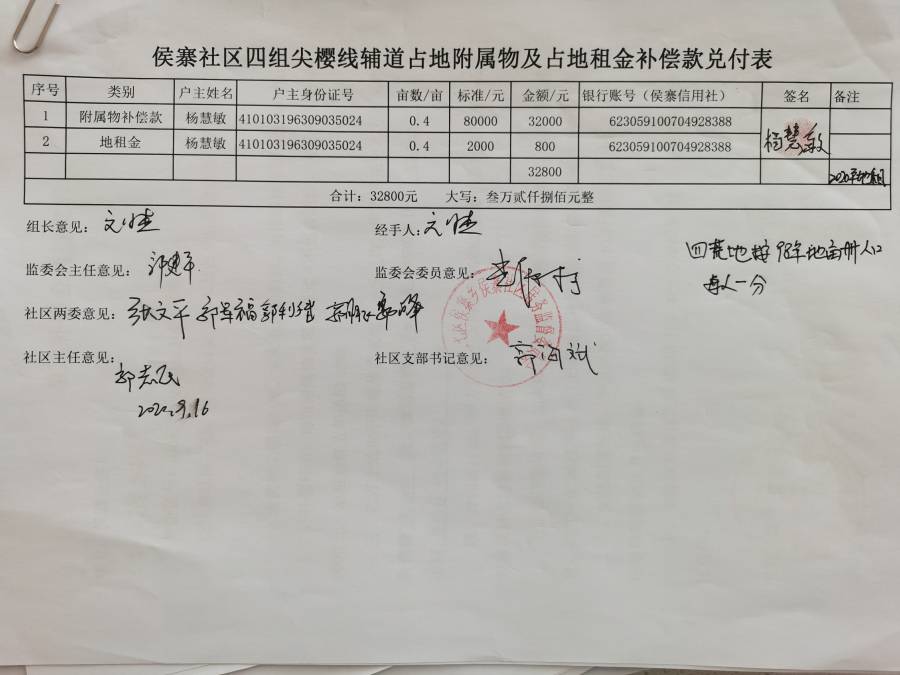 侯寨社区四组尖樱线辅道占地附属物及占地租金补偿款兑付表
序号 类别 户主姓名 户主身份证号 亩数/亩 标准/元 金额/元 银行账号（侯寨信用社） 签名 备注
1 附属物补偿款 杨慧敏 410103196309035024 0.4 80000 32000 623059100704928388 杨慧敏
2 地租金 杨慧敏 410103196309035024 0.4 2000 800 623059100704928388
32800
合计：32800元 大写：叁万贰仟捌佰元整
组长意见： 经手人：
四荒地按98年地亩册人口
每人一分
监委会主任意见： 监委会委员意见：
社区两委意见：张文平
社区主任意见： 社区支部书记意见：
郭志民